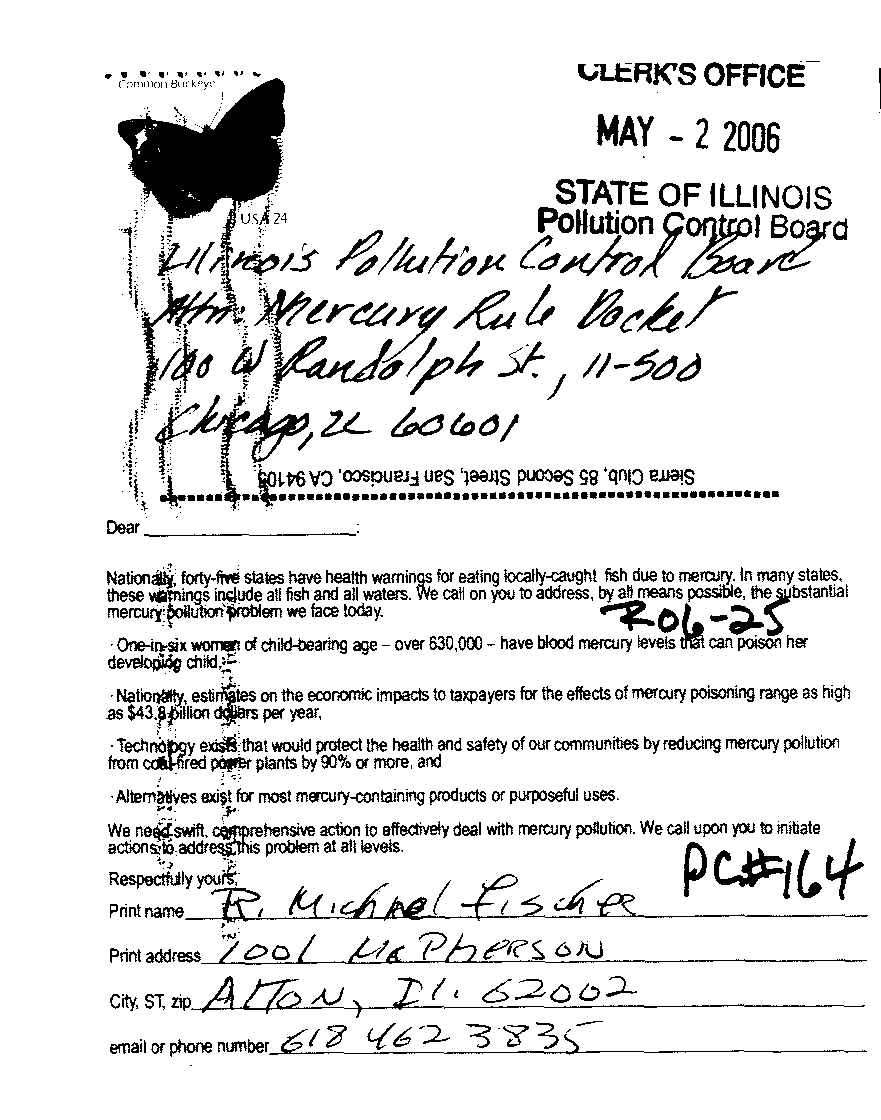 Common Buckeye
USA 24
CLERK'S OFFICE
MAY - 2 2006
STATE OF ILLINOIS
Pollution Control Board
Illinois Pollution Control Board
Attn: Mercury Rule Docket
100 W Randolph St., 11-500
Chicago, IL 60601
Sierra Club, 85 Second Street, San Francisco, CA 94105
Dear :
Nationally, forty-five states have health warnings for eating locally-caught fish due to mercury. In many states,
these warnings include all fish and all waters. We call on you to address, by all means possible, the substantial
mercury pollution problem we face today.
R06-25
· One-in-six women of child-bearing age – over 630,000 – have blood mercury levels that can poison her
developing child,
· Nationally, estimates on the economic impacts to taxpayers for the effects of mercury poisoning range as high
as $43.8 billion dollars per year,
· Technology exists that would protect the health and safety of our communities by reducing mercury pollution
from coal-fired power plants by 90% or more, and
· Alternatives exist for most mercury-containing products or purposeful uses.
We need swift, comprehensive action to effectively deal with mercury pollution. We call upon you to initiate
actions to address this problem at all levels.
PC#164
Respectfully yours,
Print name R. Michael Fischer
Print address 1001 McPherson
City, ST, zip Alton, Il. 62002
email or phone number 618 462 3835